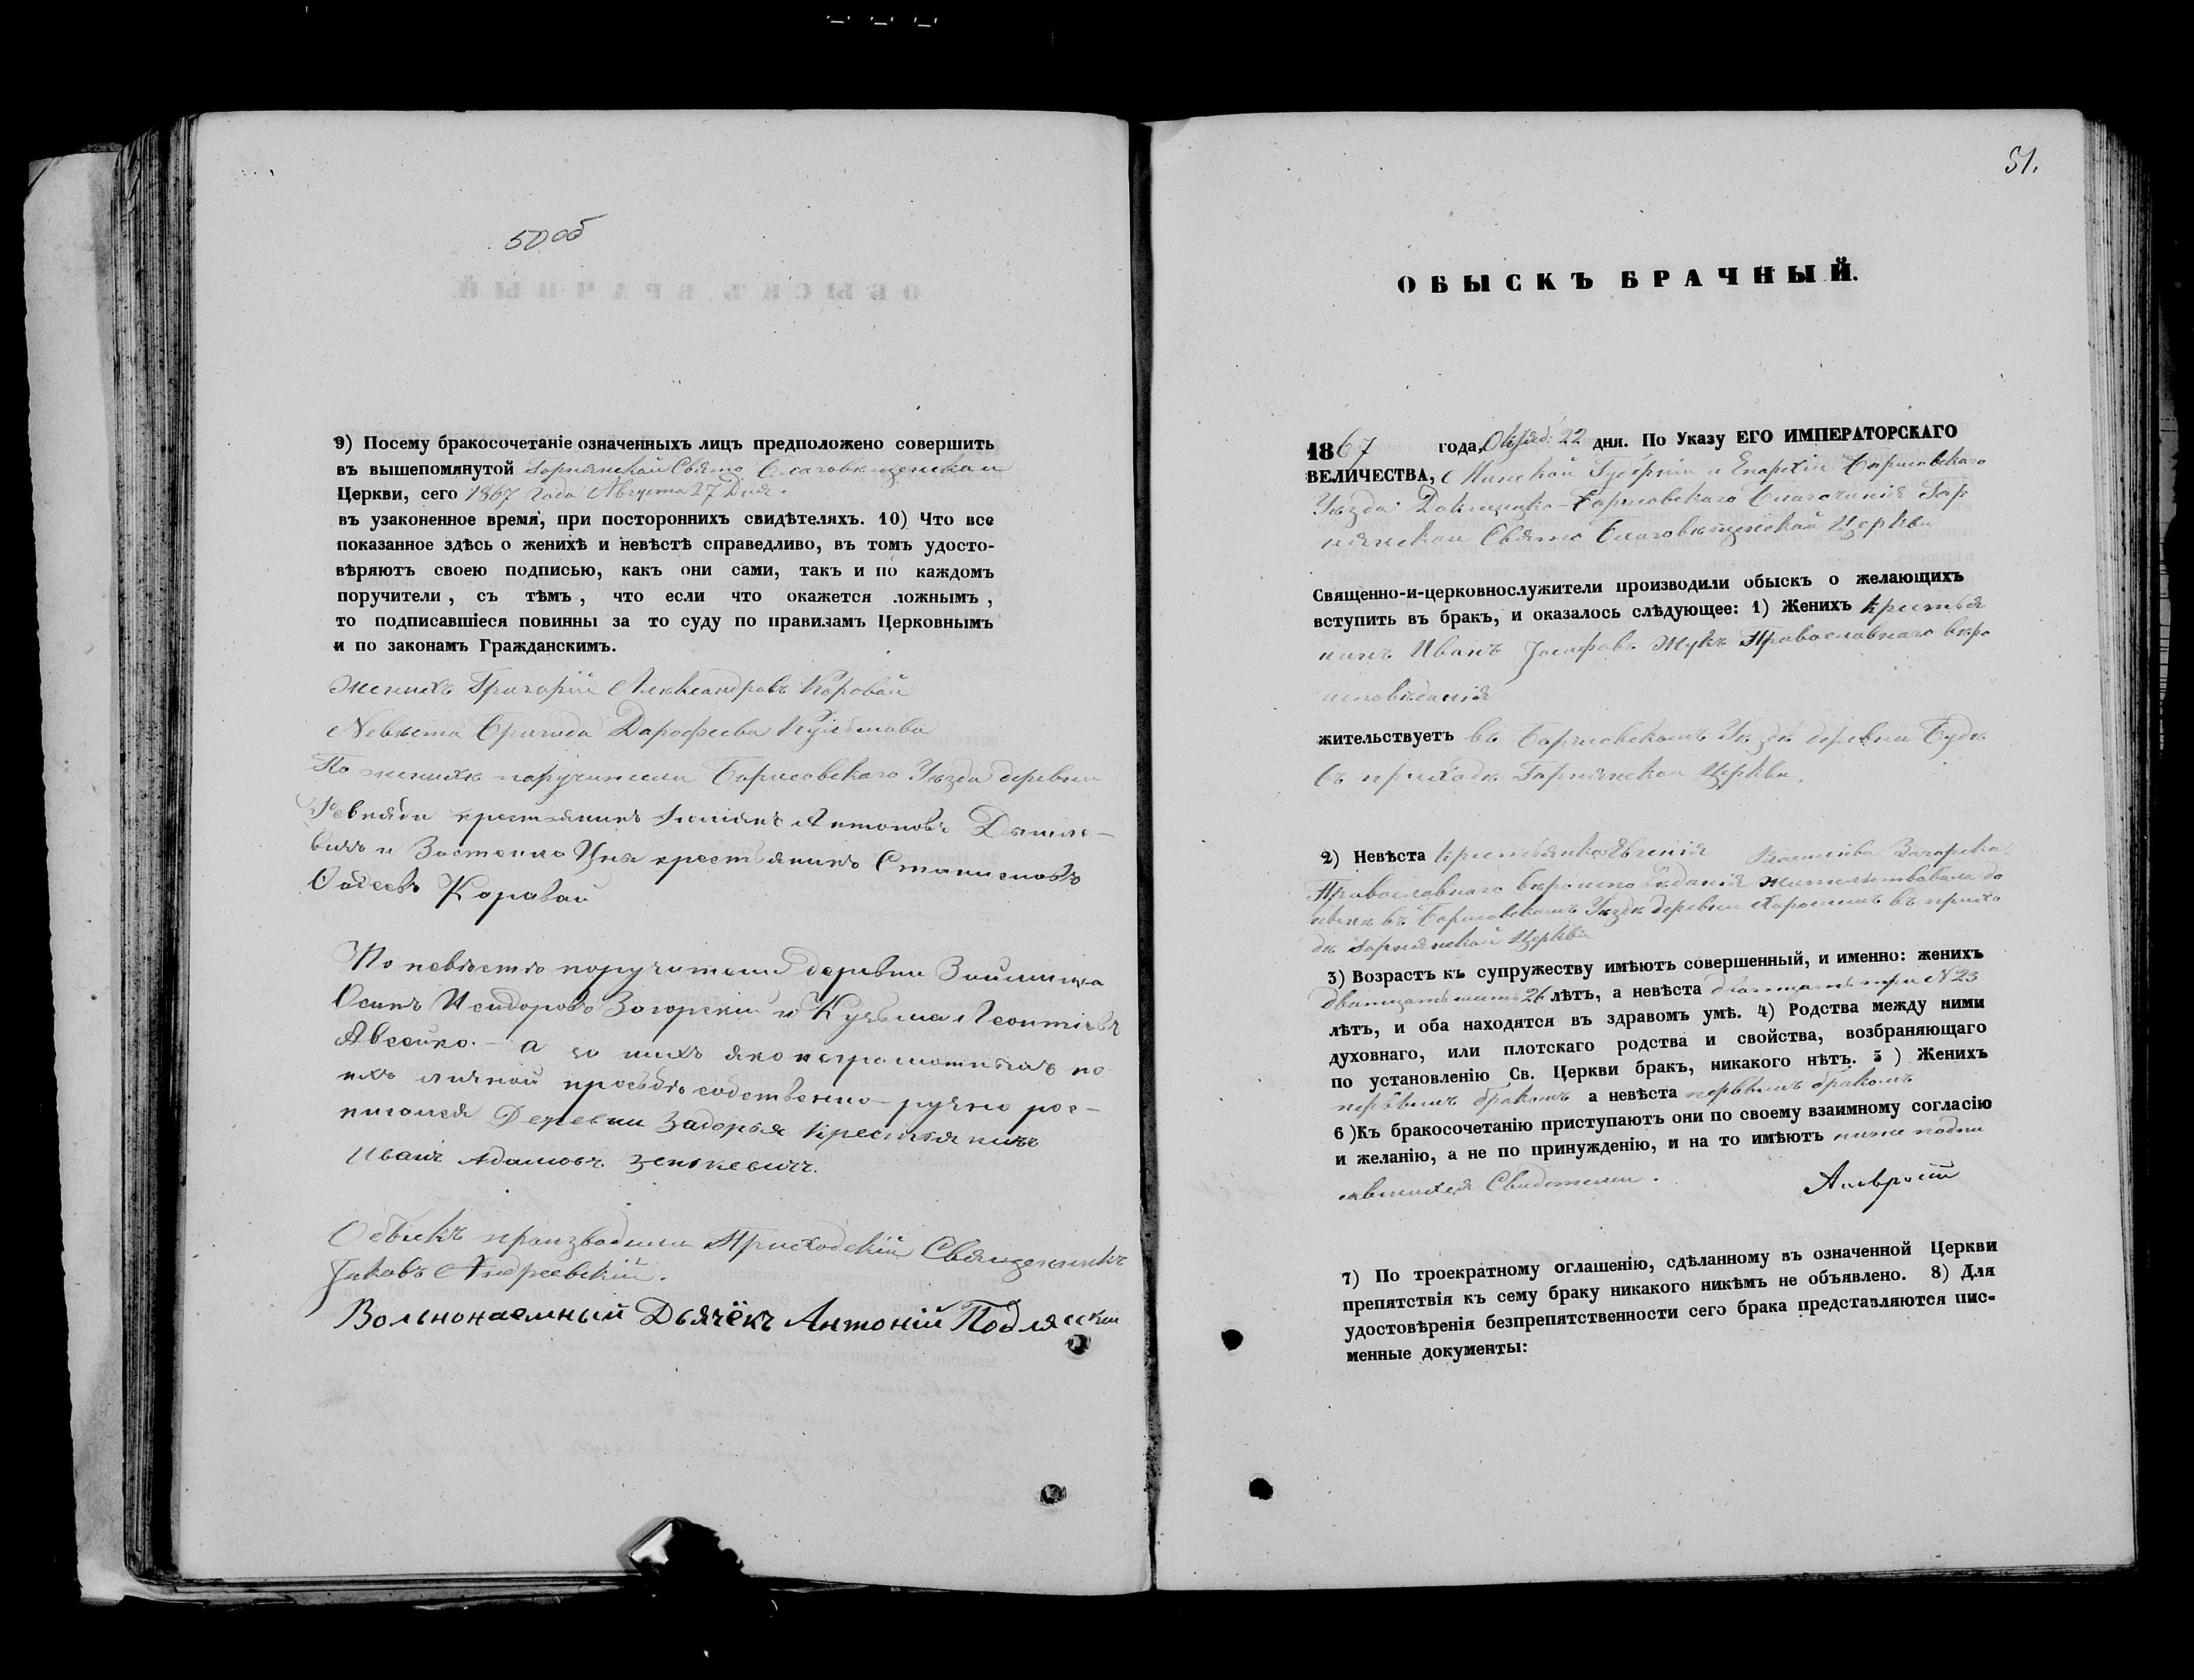 50 об
9) Посему бракосочетаніе означенныхъ лицъ предположено совершить
въ вышепомянутой Горнянской Свято Благовѣщенской
Церкви, сего 1867 Года Августа 27 Дня.
въ узаконенное время, при постороннихъ свидѣтеляхъ. 10) Что все
показанное здѣсь о женихѣ и невѣстѣ справедливо, въ томъ удосто-
вѣряютъ своею подписью, какъ они сами, такъ и по каждомъ
поручители, съ тѣмъ, что если что окажется ложнымъ,
то подписавшіеся повинны за то суду по правиламъ Церковнымъ
и по законамъ Гражданскимъ.
Женихъ Григорій Александровъ Коровай
Невѣста Бригида Дарофеева
По женихѣ поручители Борисовскаго Уѣзда деревни
крестьянинъ Антоновъ
и Застенка Цна крестьянинъ Станиславъ
Фадеевъ Каравай
По невѣстѣ поручители деревни
Осипъ Исидоровъ Загорскій и Кузьма Леонтіевъ
Авсейко. – а за нихъ яко неграмотныхъ по
ихъ личной прозьбѣ собственно-ручно рос-
писался Деревни Задорья Крестьянинъ
Иванъ Адамовъ Зенькевичъ.
Обыскъ производили Приходскій Священникъ
Іаковъ Андреевскій.
Вольнонаемный Дьячёкъ Антоній Подляскій
51.
ОБЫСКЪ БРАЧНЫЙ.
1867 года, Октяб: 22 дня. По Указу ЕГО ИМПЕРАТОРСКАГО
ВЕЛИЧЕСТВА, Минской Губерніи и Епархіи Борисовскаго
Уѣзда Докшицко-Борисовскаго Благочинія Гор
нянской Свято Благовѣщенской Церкви
Священно-и-церковнослужители производили обыскъ о желающихъ
вступить въ бракъ, и оказалось слѣдующее: 1) Женихъ крестья
нинъ Иванъ Іосифовъ Жукъ Православнаго вѣро
исповѣданія
жительствуетъ въ Борисовскомъ Уѣздѣ деревни Будѣ
въ приходѣ Горнянской Церкви.
2) Невѣста крестьянка Евгенія Загорска
Православнаго вѣроисповѣданія жительствовала до
нынѣ въ Борисовскомъ Уѣздѣ деревни въ прихо
дѣ Горнянской Церкви
3) Возрастъ къ супружеству имѣютъ совершенный, и именно: женихъ
26 лѣтъ, а невѣста двадцать три № 23
лѣтъ, и оба находятся въ здравомъ умѣ. 4) Родства между ними
духовнаго, или плотскаго родства и свойства, возбраняющаго
по установленію Св. Церкви бракъ, никакого нѣтъ. 5) Женихъ
первымъ бракомъ а невѣста первымъ бракомъ
6) Къ бракосочетанію приступаютъ они по своему взаимному согласію
и желанію, а не по принужденію, и на то имѣютъ ниже подпи
савшихся Свидетели.
7) По троекратному оглашенію, сдѣланному въ означенной Церкви
препятствія къ сему браку никакого никѣмъ не объявлено. 8) Для
удостовѣренія безпрепятственности сего брака представляются пис-
менные документы: